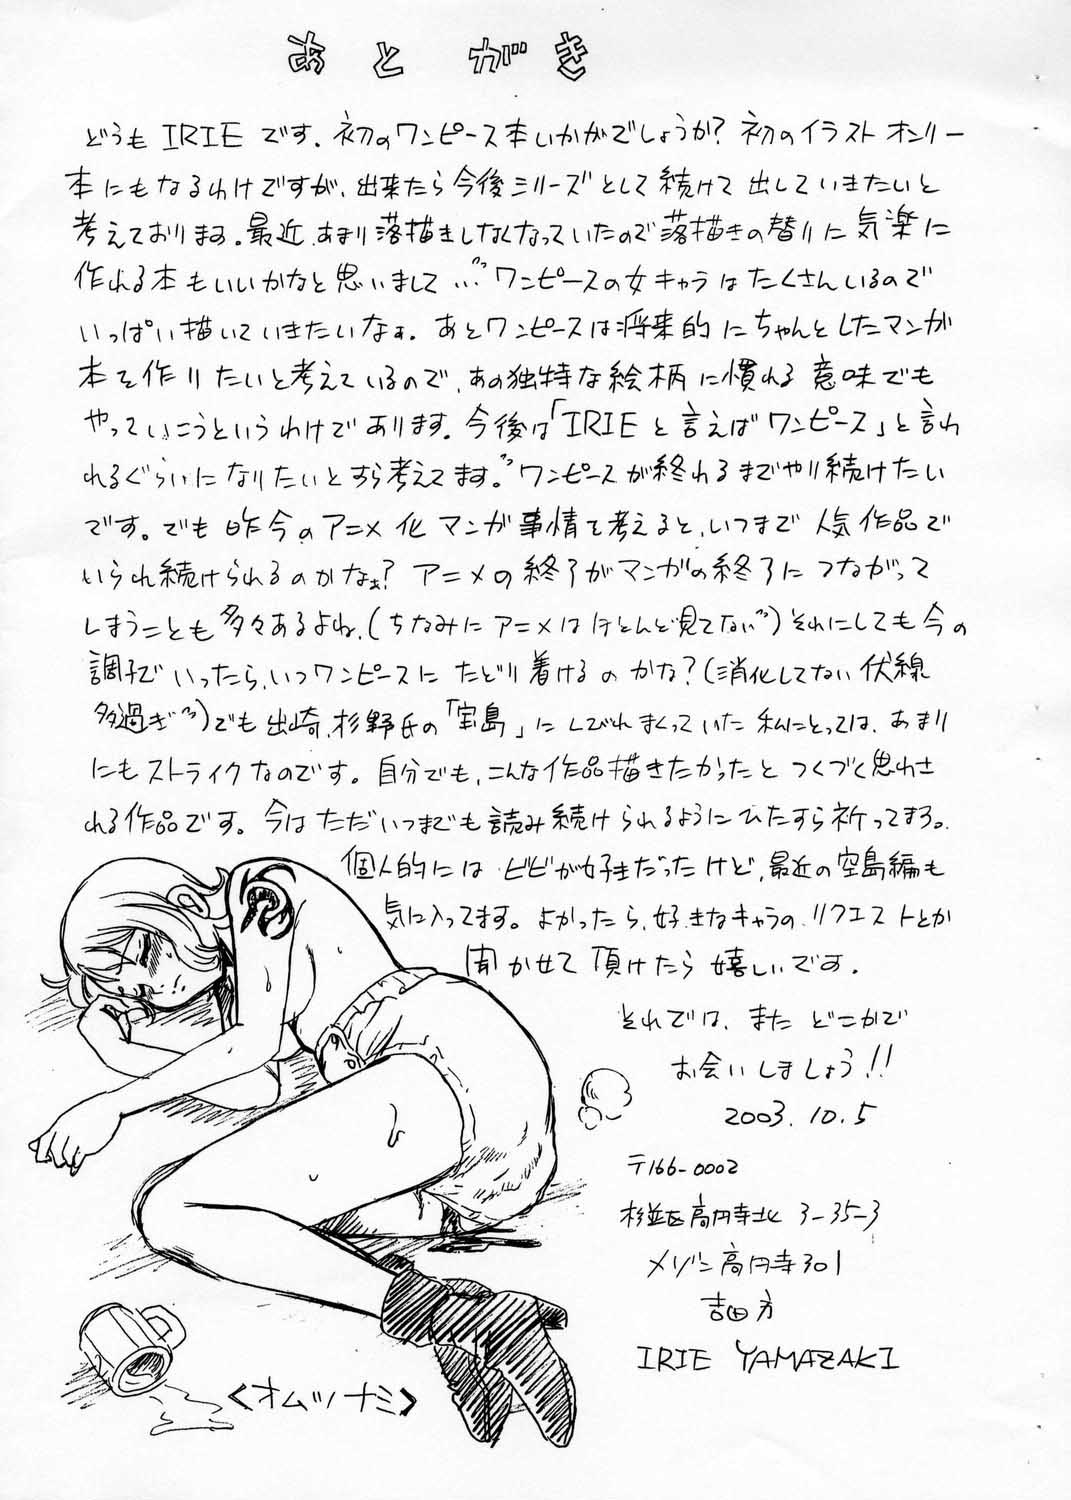 あとがき
どうも IRIE です。初のワンピース本いかがでしょうか? 初のイラストオンリー
本にもなるわけですが、出来たら今後シリーズとして続けて出していきたいと
考えております。最近、あまり落描きしなくなっていたので落描きの替りに気楽に
作れる本もいいかなと思いまして… ワンピースの女キャラはたくさんいるので
いっぱい描いていきたいなぁ。あとワンピースは将来的にちゃんとしたマンガ
本を作りたいと考えているので、あの独特な絵柄に慣れる意味でも
やっていこうというわけであります。今後は「IRIEと言えばワンピース」と言わ
れるぐらいになりたいとすら考えてます。ワンピースが終わるまでやり続けたい
です。でも昨今のアニメ化マンガ事情を考えると、いつまで人気作品で
いられ続けられるのかなぁ? アニメの終了がマンガの終了につながって
しまうことも多々あるよね、(ちなみにアニメはほとんど見てない)それにしても今の
調子でいったら、いつワンピースにたどり着けるのかな?(消化してない伏線
多過ぎ)でも出崎、杉野氏の「宝島」にしびれまくっていた私にとっては、あまり
にもストライクなのです。自分でも、こんな作品描きたかったとつくづく思わさ
れる作品です。今はただいつまでも読み続けられるようにひたすら祈ってまする。
個人的にはビビが好きだったけど、最近の空島編も
気に入ってます。よかったら、好きなキャラの、リクエストとか
聞かせて頂けたら嬉しいです。
それでは、またどこかで
お会いしましょう!!
2003.10.5
〒166-0002
杉並区高円寺北 3-35-3
メゾン高円寺301
吉田方
IRIE YAMAZAKI
<オムツナミ>